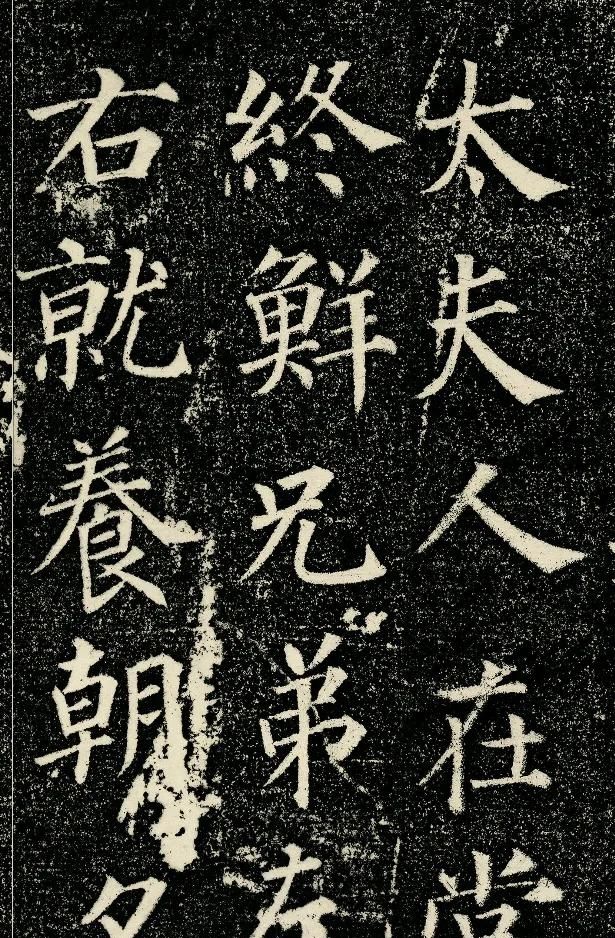 太夫人在堂
終鮮兄弟左
右就養朝夕